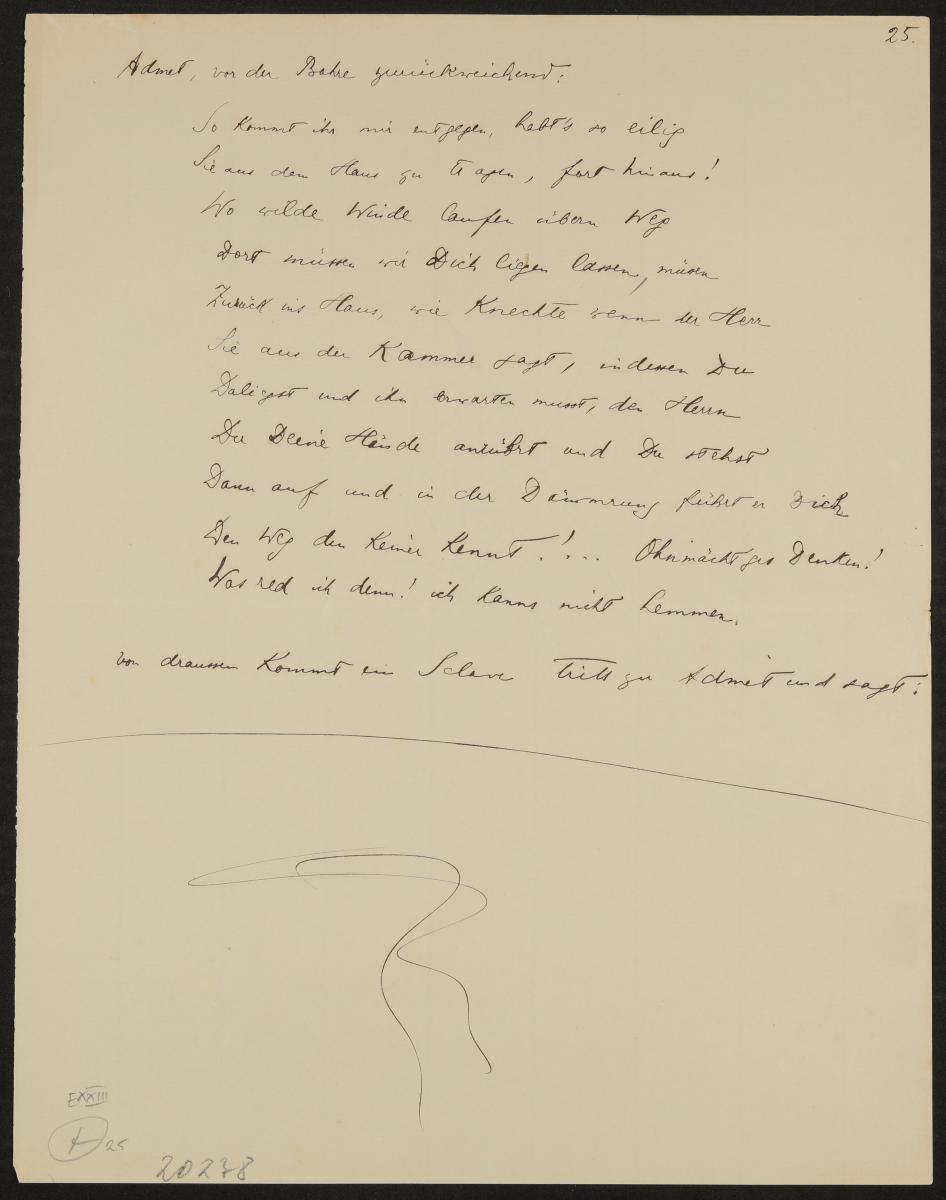 25.
Admet, vor der Bahre zurückweichend:
So kommt ihr mir entgegen, habt's so eilig
Sie aus dem Haus zu tragen, fort hinaus!
Wo wilde Winde laufen übern Weg
Dort müssen wir Dich liegen lassen, müssen
Zurück ins Haus, wie Knechte wenn der Herr
Sie aus der Kammer jagt, indessen Du
Daliegst und ihn erwarten musst, den Herrn
Der Deine Hände anrührt und Du stehst
Dann auf und in der Dämmrung führt er Dich
Den Weg den Keiner kennt! ... Ohnmächtges Denken!
Was red ich denn! ich kanns nicht hemmen.
von draussen kommt ein Sclave tritt zu Admet und sagt:
EXXIII
25
20278